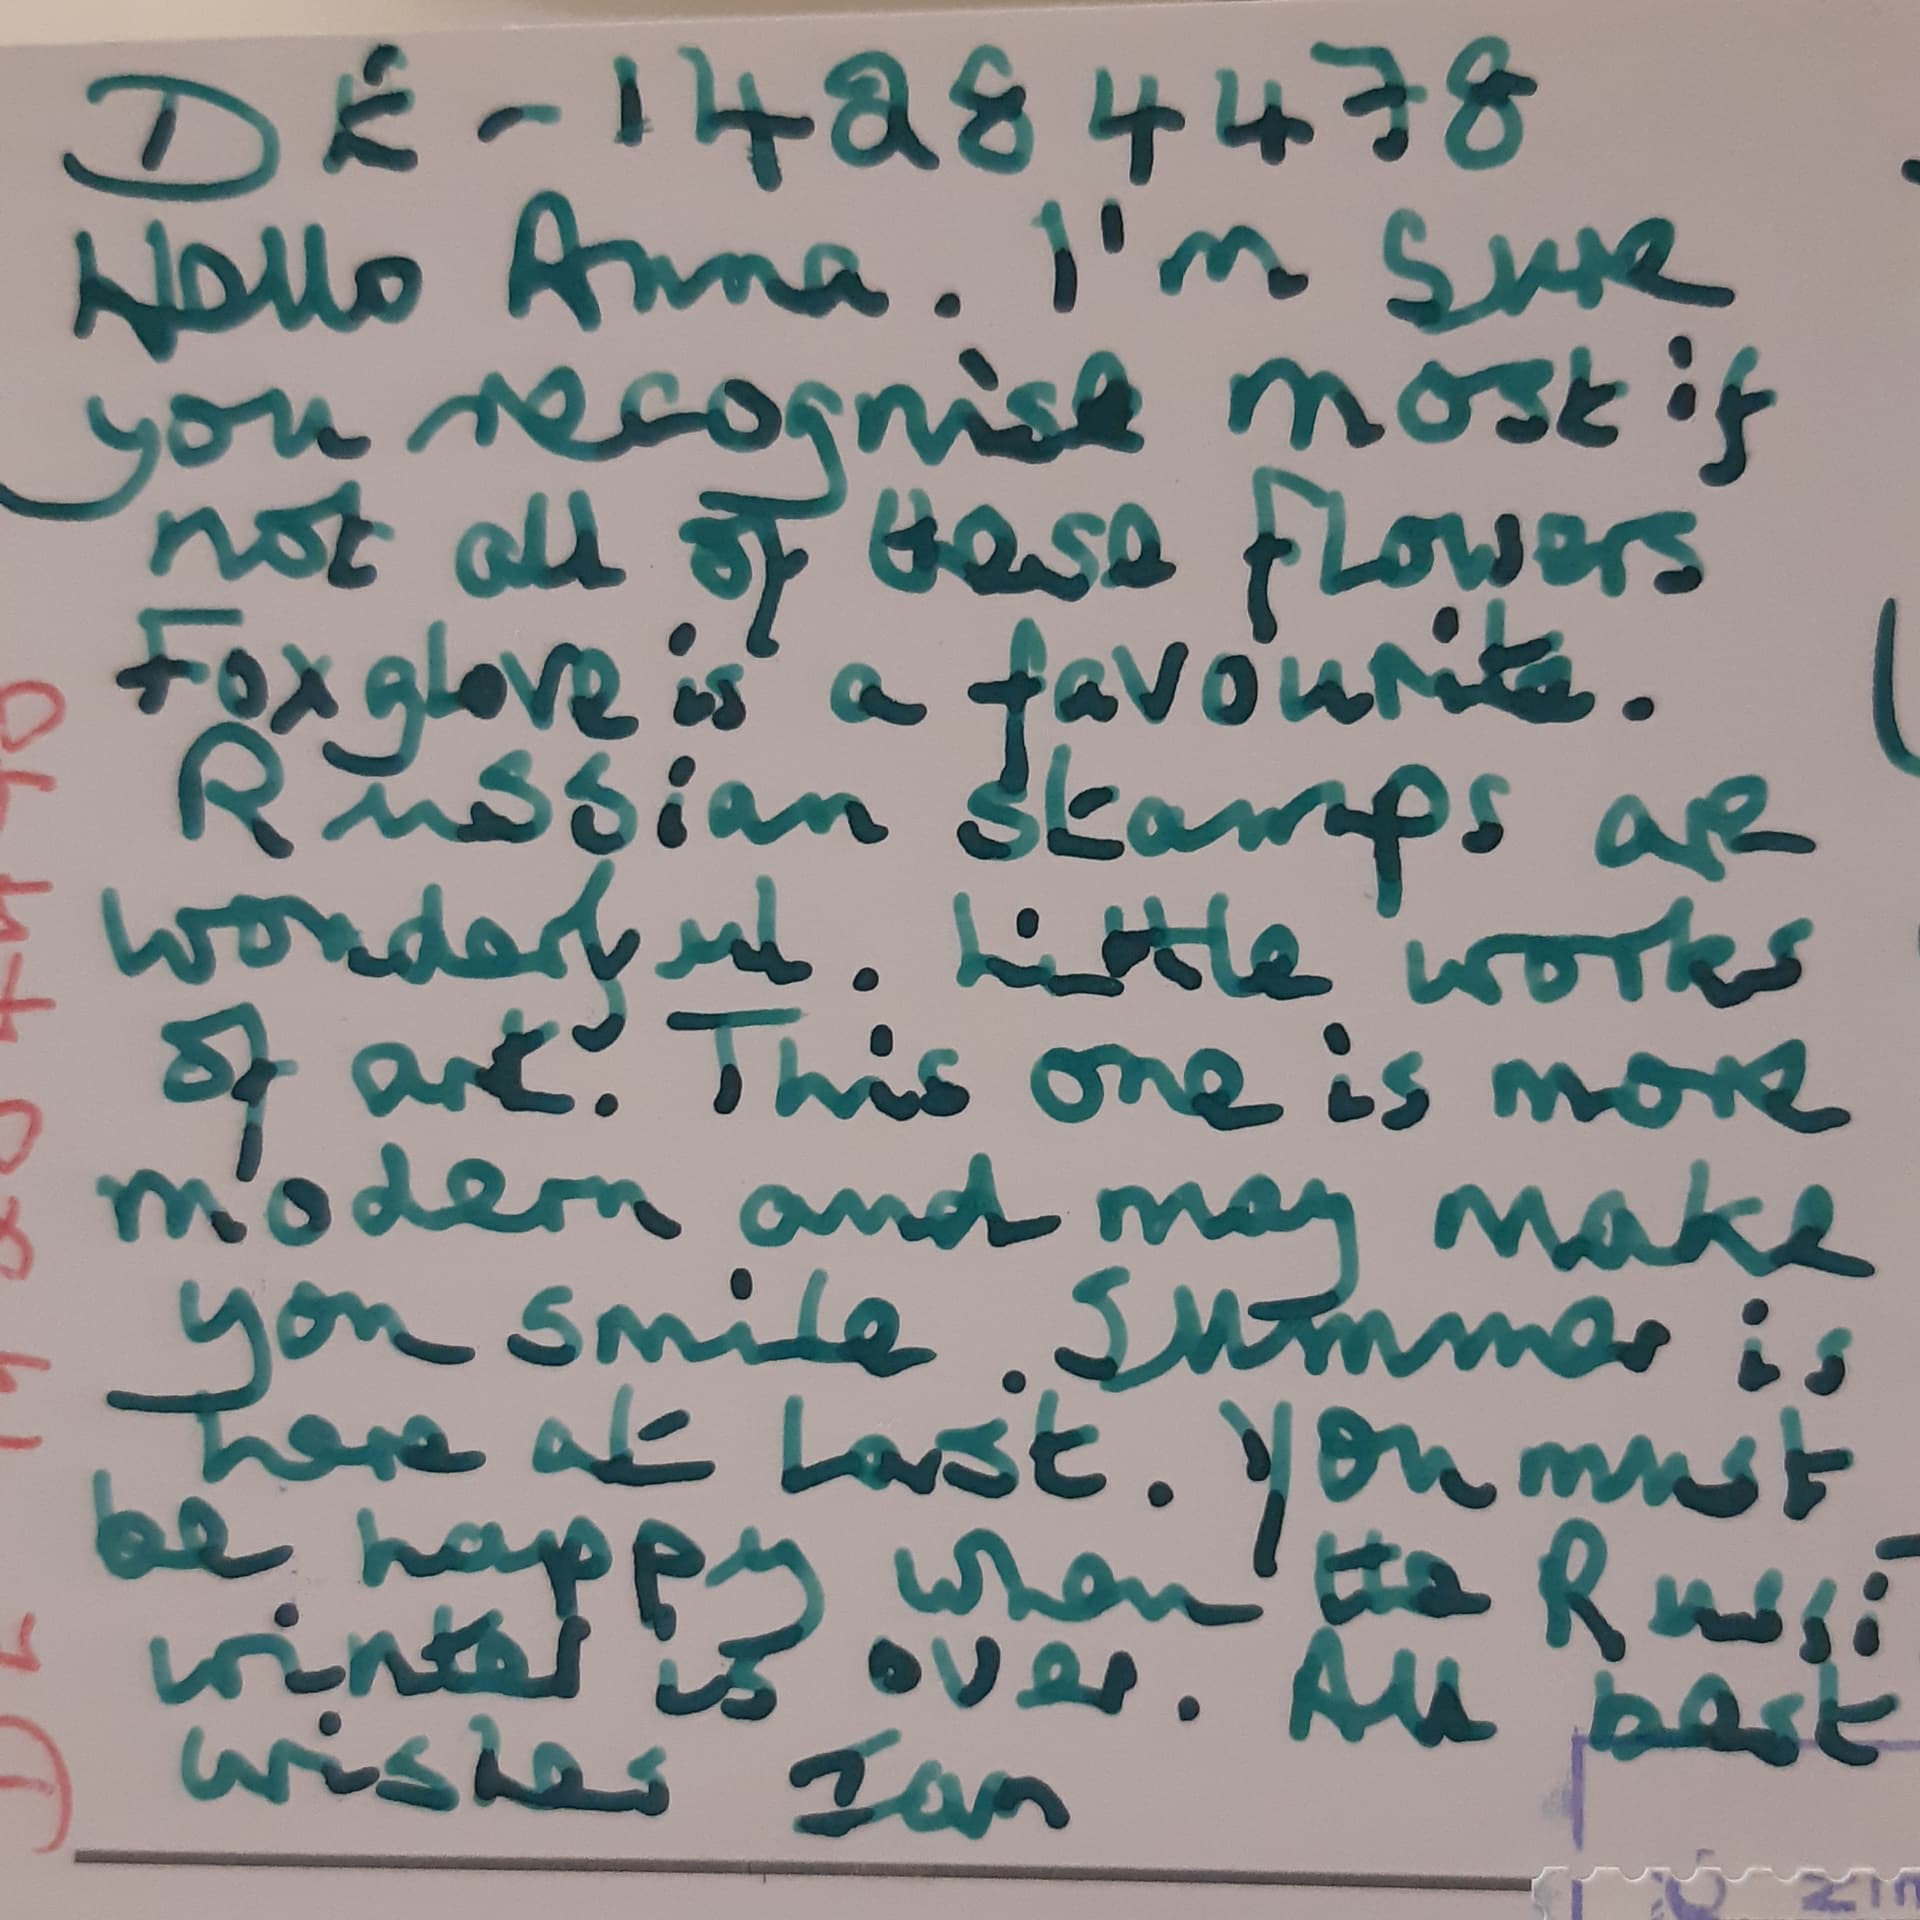 DE-14284478
Hello Anna. I'm sure
you recognise most if
not all of these flowers
Foxglove is a favourite.
Russian stamps are
wonderful. Little works
of art. This one is more
modern and may make
you smile. Summer is
here at last. You must
be happy when the Russi
winter is over. All best
wishes Ian